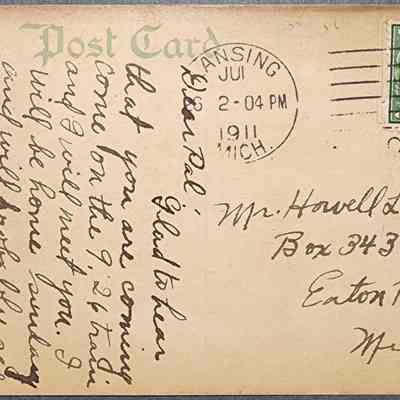 Post Card
ANSING
JUL
2-04 PM
1911
MICH.
Dear Pal,
Glad to hear
that you are coming
come on the 9:26 train
and I will meet you. I
will be home sunday
and will probably see
Mr. Howell L
Box 343
Eaton